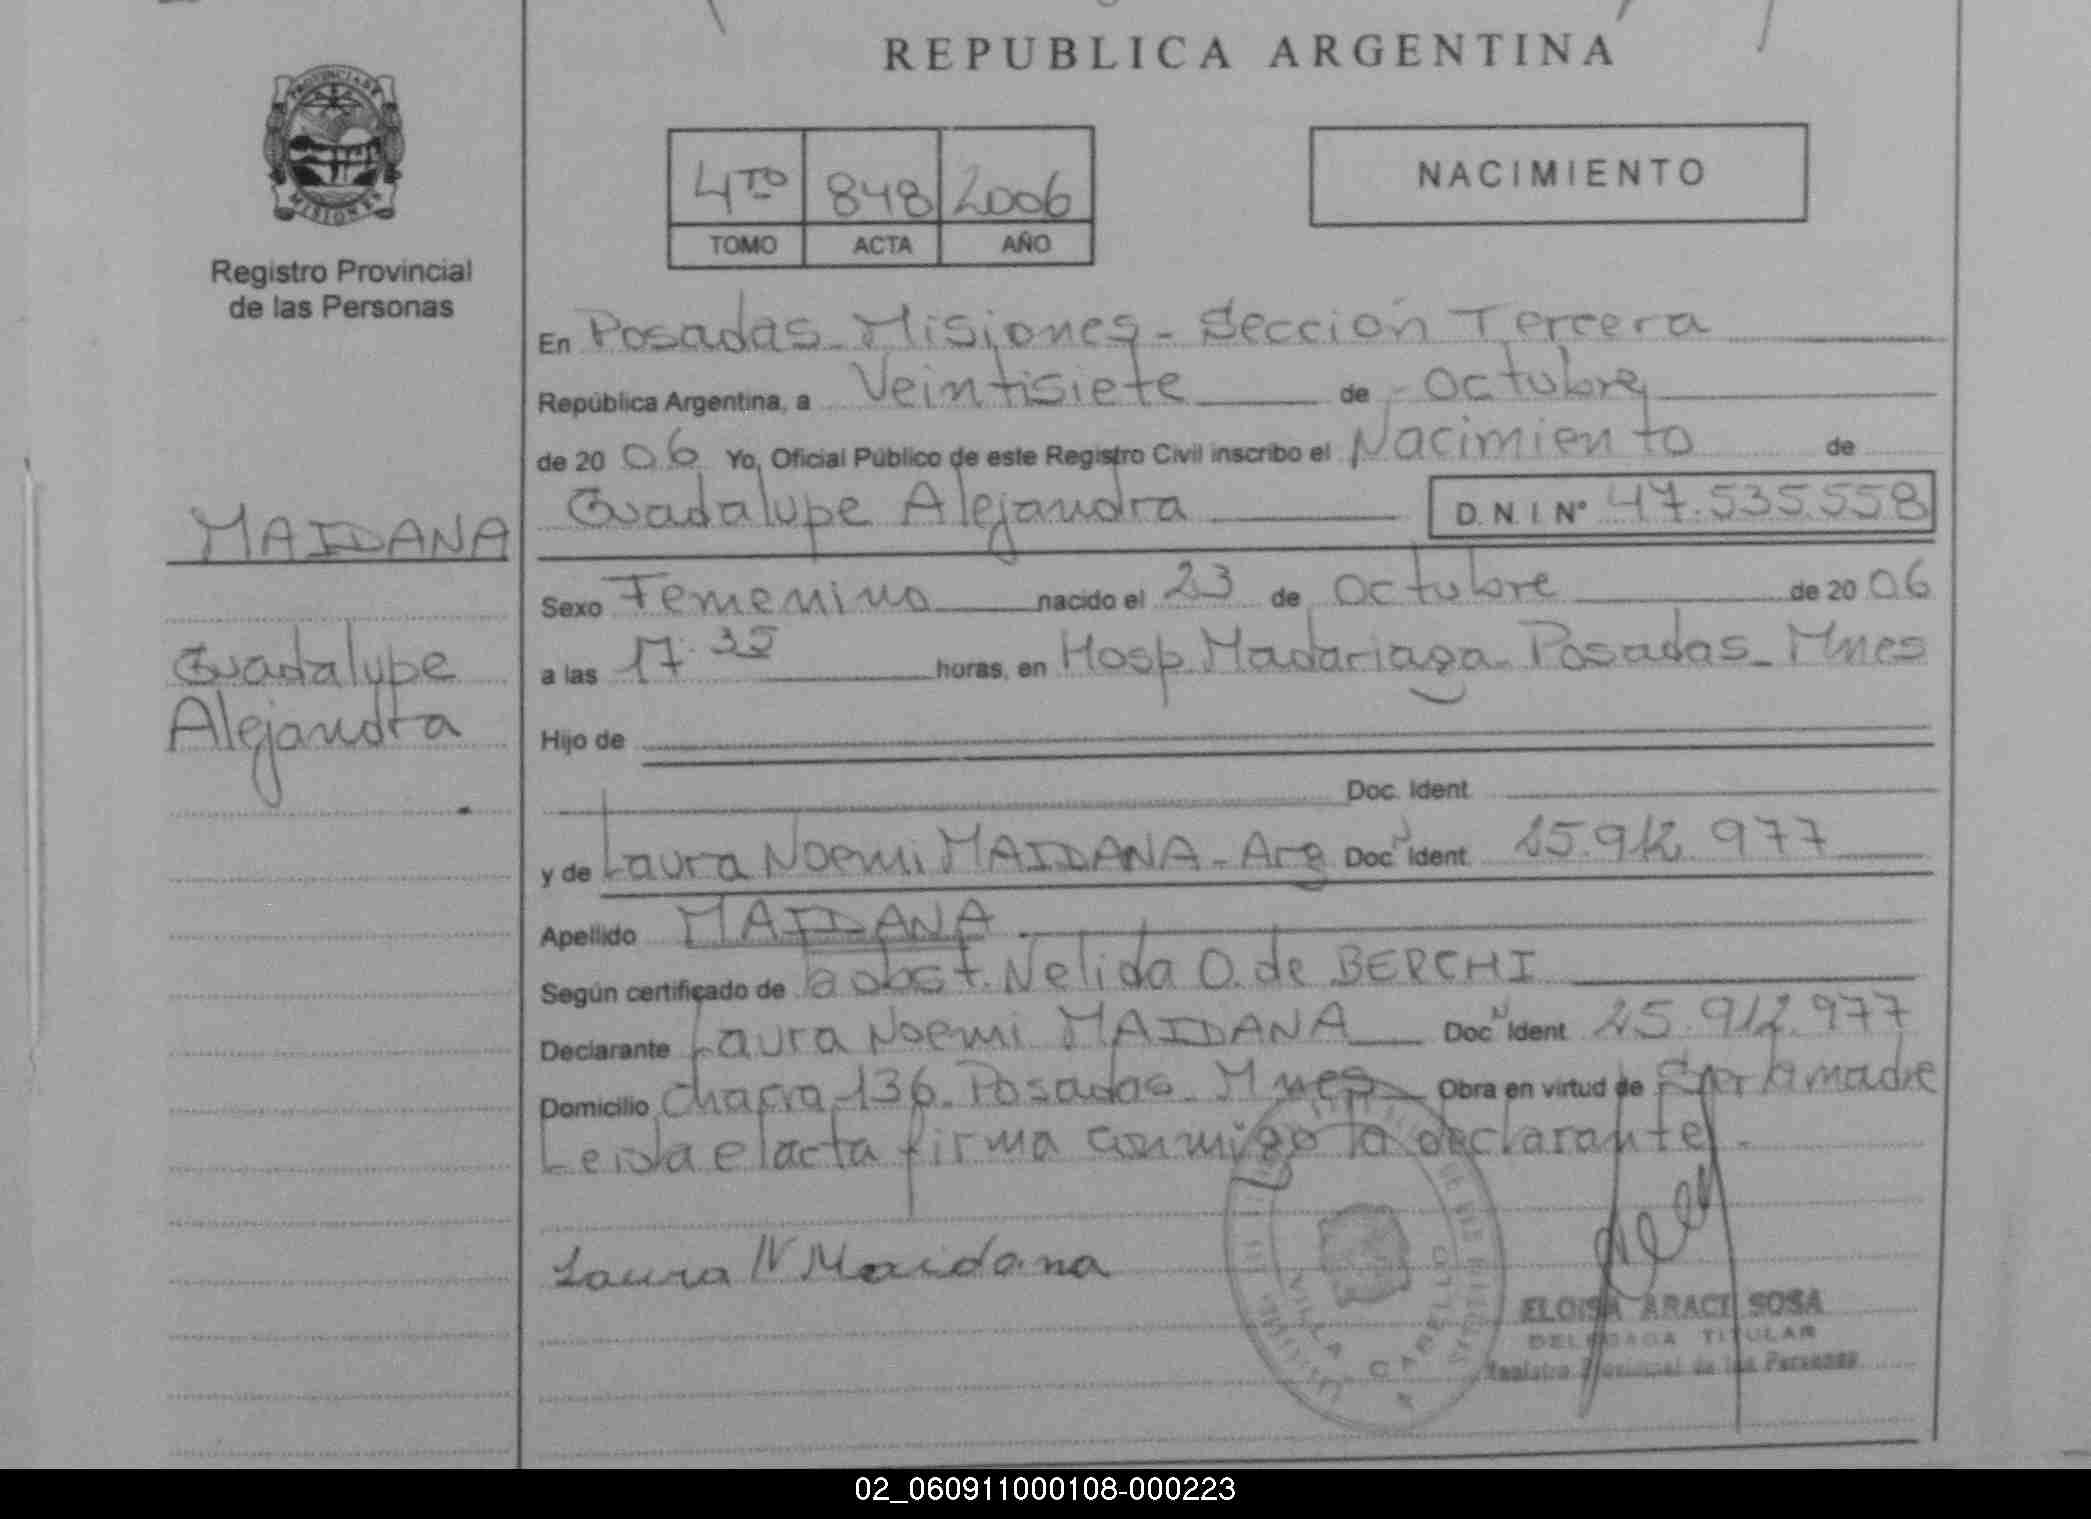 REPUBLICA ARGENTINA
PROVINCIA DE
MISIONES
Registro Provincial
de las Personas
4TO 848 2006
TOMO ACTA AÑO
NACIMIENTO
En Posadas - Misiones - Sección Tercera
República Argentina, a Veintisiete de Octubre
de 20 06 Yo, Oficial Público de este Registro Civil inscribo el Nacimiento de
Guadalupe Alejandra D.N.I Nº 47.535.558
MAIDANA
Guadalupe
Alejandra
Sexo Femenino nacido el 23 de Octubre de 20 06
a las 17.35 horas, en Hosp. Madariaga - Posadas - Mnes
Hijo de
Doc. Ident.
y de Laura Noemi MAIDANA - Arg Doc. Ident. 25.912.977
Apellido MAIDANA
Según certificado de la obst. Nelida O. de BERCHI
Declarante Laura Noemi MAIDANA Doc. Ident. 25.912.977
Domicilio Chacra 136 - Posadas - Mnes Obra en virtud de Ser la madre
Leida el acta firma conmigo la declarante -
Laura N Maidana
VILLA CABELLO
ELOISA ARACI SOSA
DELEGADA TITULAR
Registro Provincial de las Personas
02_060911000108-000223